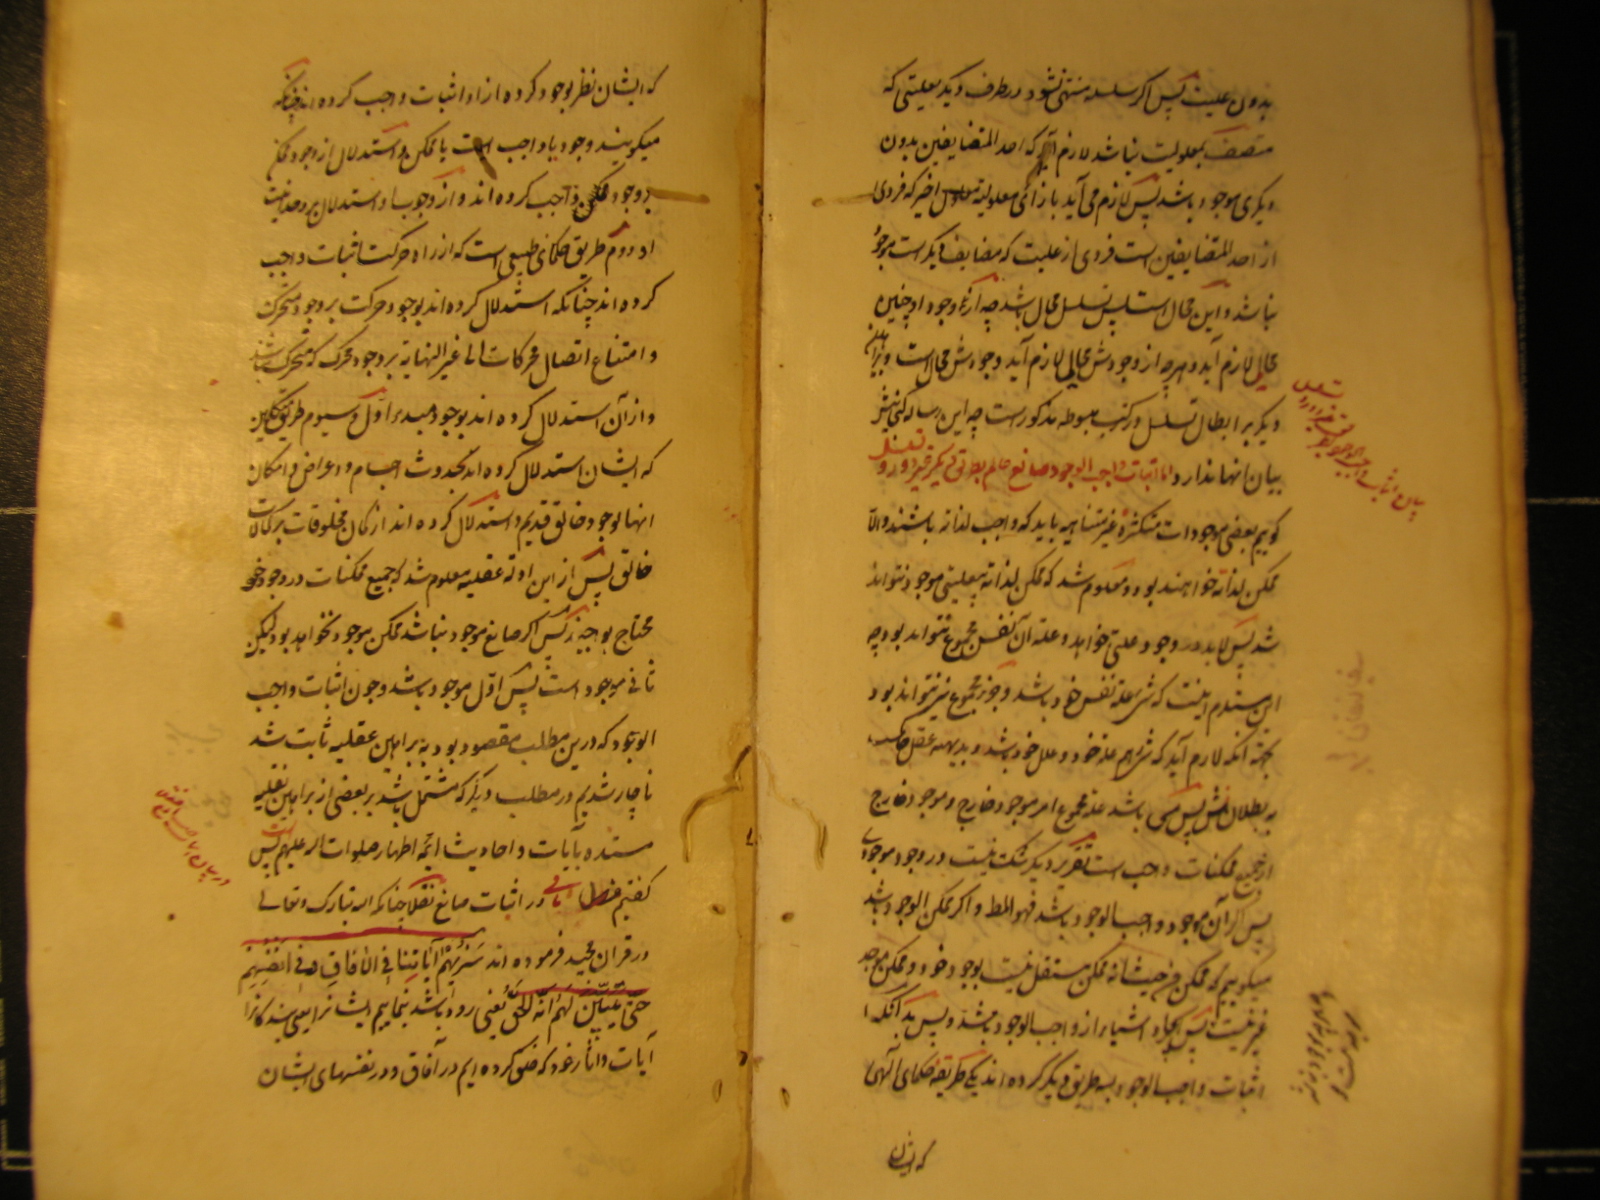 بدون علیت پس اگر سلسله منتهی نشود در طرف دیگر بعلیتی که
متصف بمعلولیت نباشد لازم آید که احد المتضایفین بدون
دیگری موجود باشد پس لازم می آید بازای معلولیة معلول اخیر که فردی
از احد المتضایفین است فردی از علیت که مضایف دیگر است موجود
نباشد و این محال است پس تسلسل محال باشد چه آنکه وجود او چنین
محالی لازم آید و هرچه از وجودش محالی لازم آید وجودش محال است و براهین
دیگر بر ابطال تسلسل در کتب مبسوطه مذکور است چه این رساله گنجایش
بیان انها ندارد و اما اثبات واجب الوجود صانع عالم بطریق دیگر غیر دور و تسلسل
گوییم بعضی موجودات متکثره غیر متناهیه باید که واجب لذاته باشند و الا
ممکن لذاته خواهند بود و معلوم شد که ممکن لذاته بیعلتی موجود نتواند
شد پس لابد در وجود علتی خواهد و علة آن نفس مجموع نتواند بود چه
این مستلزم اینست که شی علة نفس خود باشد و جزء مجموع نیز نتواند بود
بجهة آنکه لازم آید که شی هم علة خود و علل خود باشد و بدیهه عقل حاکمست
به بطلانش پس می باشد علة مجموع امر موجود خارج و موجود خارج
از جمیع ممکنات واجب است تقریر دیگر شک نیست در وجود موجودی
پس اگر آن موجود واجب الوجود باشد فهو المط و اگر ممکن الوجود باشد
میگوییم که ممکن من حیث انه ممکن مستقل نیست بوجود خود و ممکن موجد
غیر نیست پس ایجاد اشیا از واجب الوجود باشد و پس بدانکه
اثبات واجب الوجود بسه طریق دیگر کرده اند یکی طریقه حکمای الهی
که ایشان
که ایشان نظر بوجود کرده از او اثبات واجب کرده اند چنانکه
میگویند وجود یا واجب است یا ممکن و استدلال از وجود ممکن
بر وجود واجب کرده اند و از وجوب او استدلال بر وحدانیت
او دوم طریق حکمای طبیعی است که از راه حرکت اثبات واجب
کرده اند چنانکه استدلال کرده اند بوجود حرکت بر وجود متحرک
و امتناع اتصال محرکات الی غیر النهایة بر وجود محرک که متحرک نباشد
و از آن استدلال کرده اند بوجود مبدء اول و سیوم طریق متکلمین
که ایشان استدلال کرده اند بحدوث اجسام و اعراض و امکان
انها بوجود خالق قدیم و استدلال کرده اند از کمال مخلوقات بر کمالات
خالق پس از این ادله عقلیه معلوم شد که جمیع ممکنات در وجود خود
محتاج بواجبند پس اگر صانع موجود نباشد ممکن موجود نخواهد بود لیکن
ثانی موجود است پس اول موجود باشد و چون اثبات واجب
الوجود که درین مطلب مقصود بود به براهین عقلیه ثابت شد
ناچار شدیم در مطلب دیگر که مشتمل باشد بر بعضی از براهین نقلیه
مستنده بآیات و احادیث ائمه اطهار صلوات الله علیهم است پس
گفتیم فصل ثانی در اثبات صانع نقلا چنانکه الله تبارک و تعالی
در قرآن مجید فرموده اند سَنُرِیهِمْ آیاتِنا فِی الآفاقِ وَفی اَنْفُسِهِمْ
حَتّی یَتَبَیَّنَ لَهُمْ اَنَّهُ الْحَقّ یعنی زود باشد بنماییم ایشانرا یعنی بندگانرا
آیات و آثار خود که خلق کرده ایم در آفاق و در نفسهای ایشان